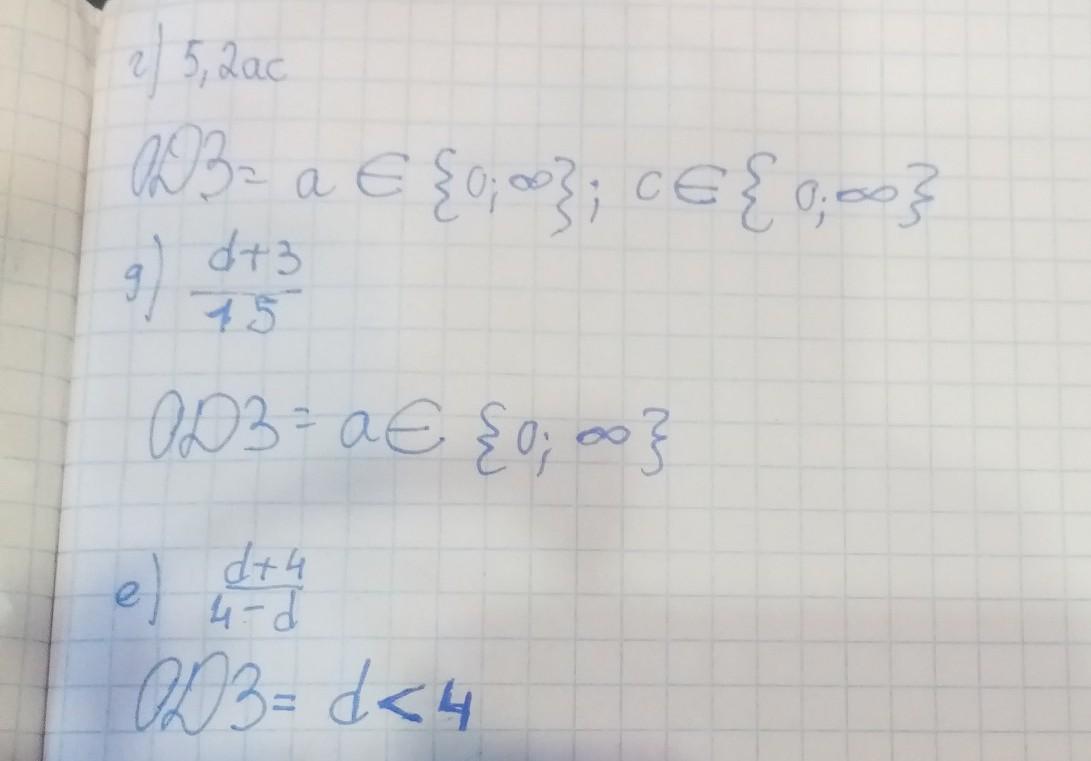 г) 5,2ac
ОДЗ= a ∈ {0; ∞}; c∈{ 0; ∞}
д) d+3
15
ОДЗ= a∈ {0; ∞}
е) d+4
4-d
ОДЗ= d<4